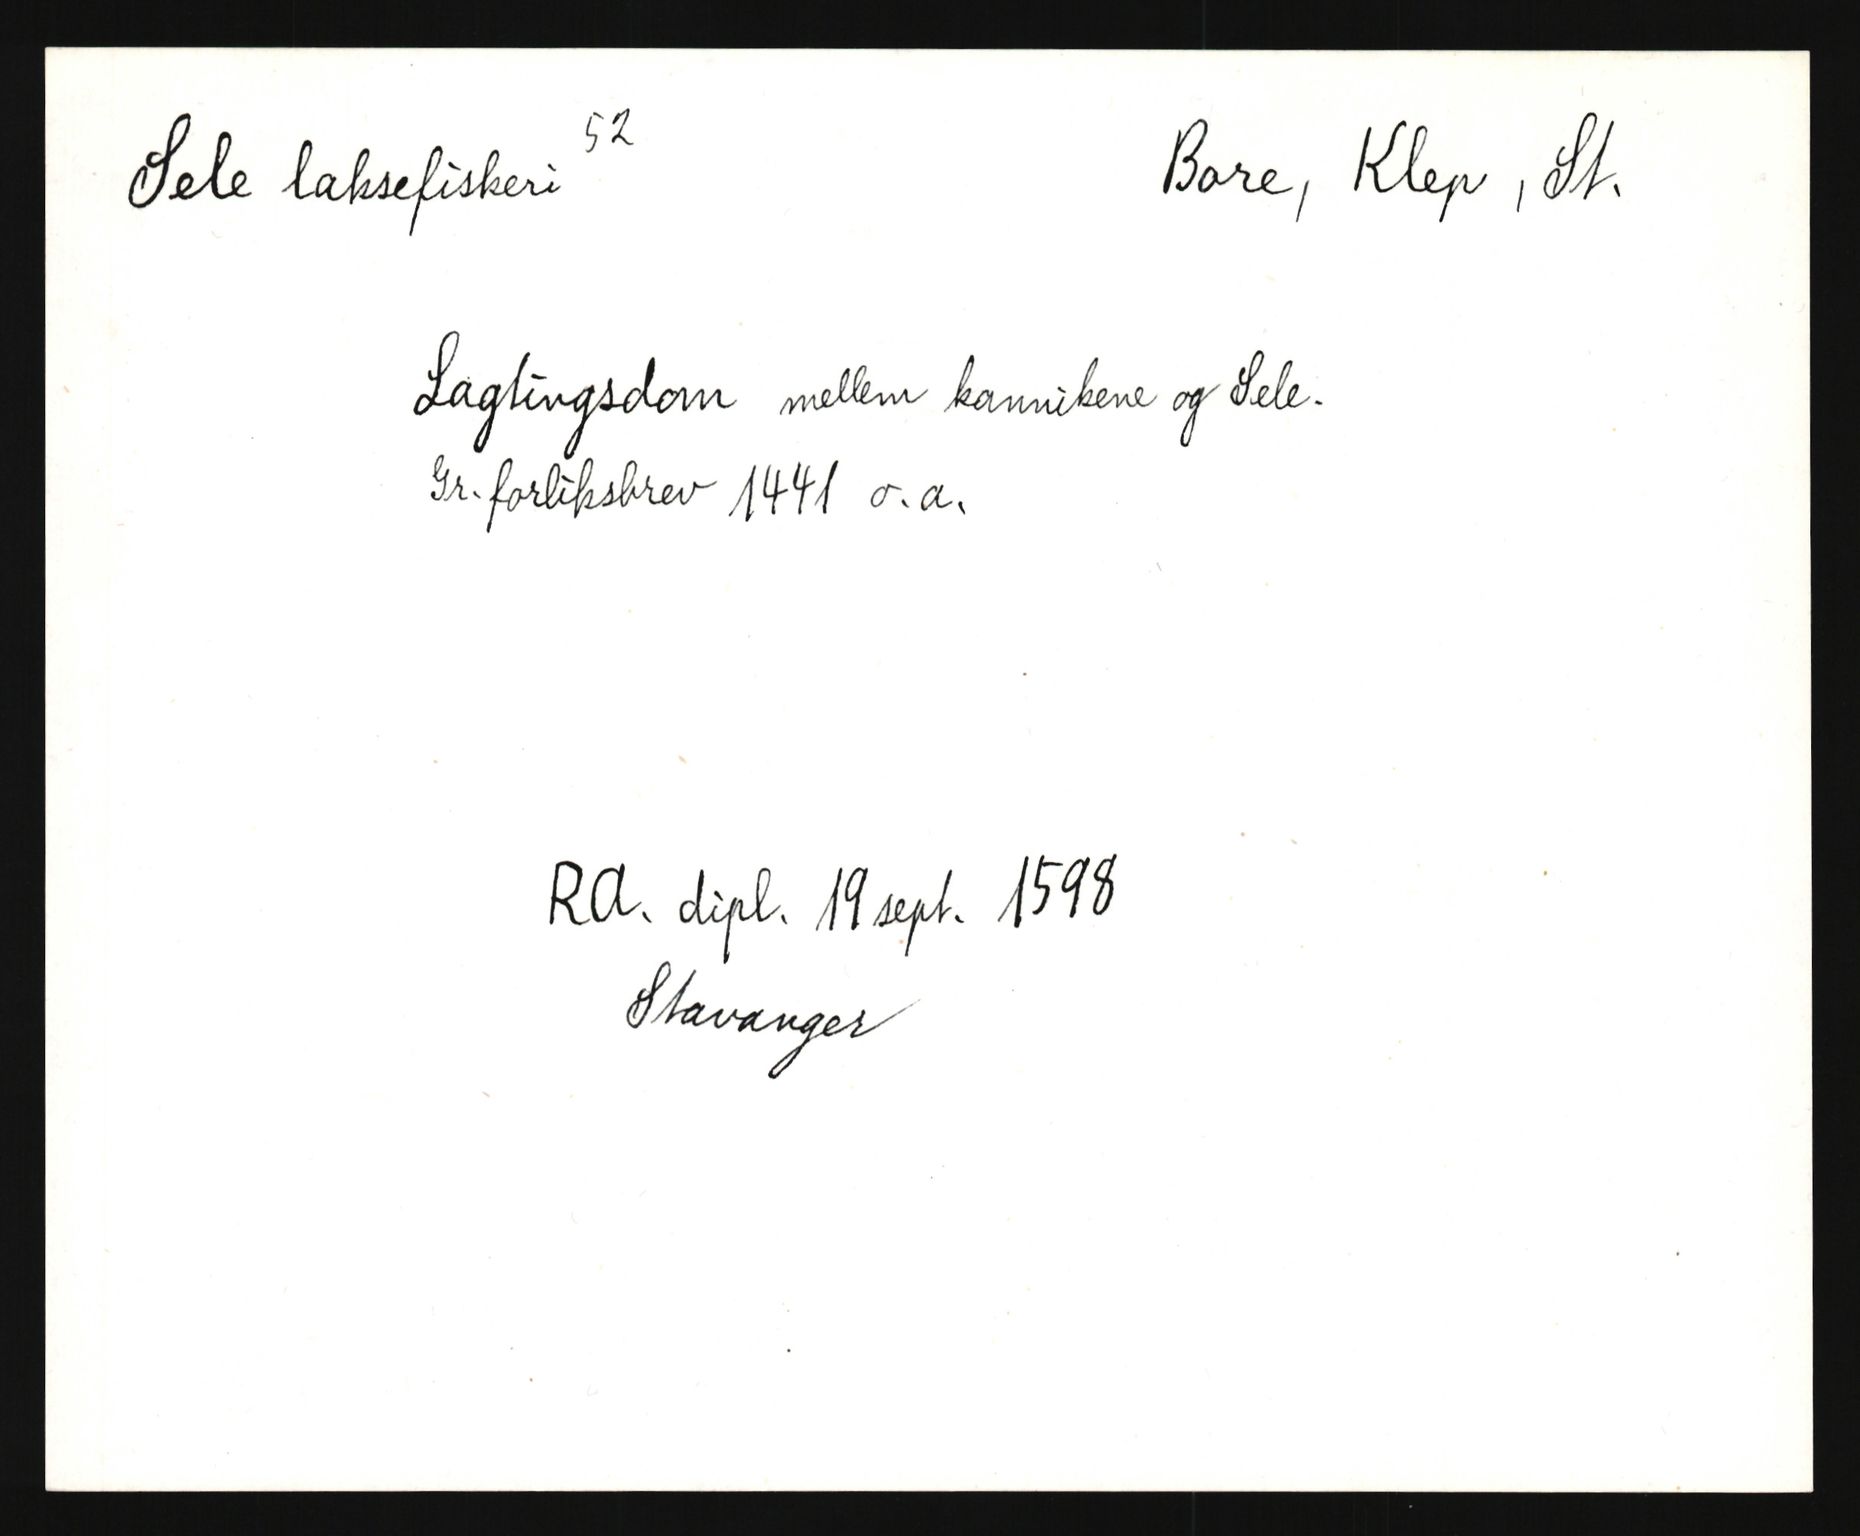 Sele laksefiskeri 52
Bore, Klep, St.
Lagtingsdom mellem kannikene og Sele.
Gr. forliksbrev 1441 o.a.
RA. dipl. 19 sept. 1598
Stavanger